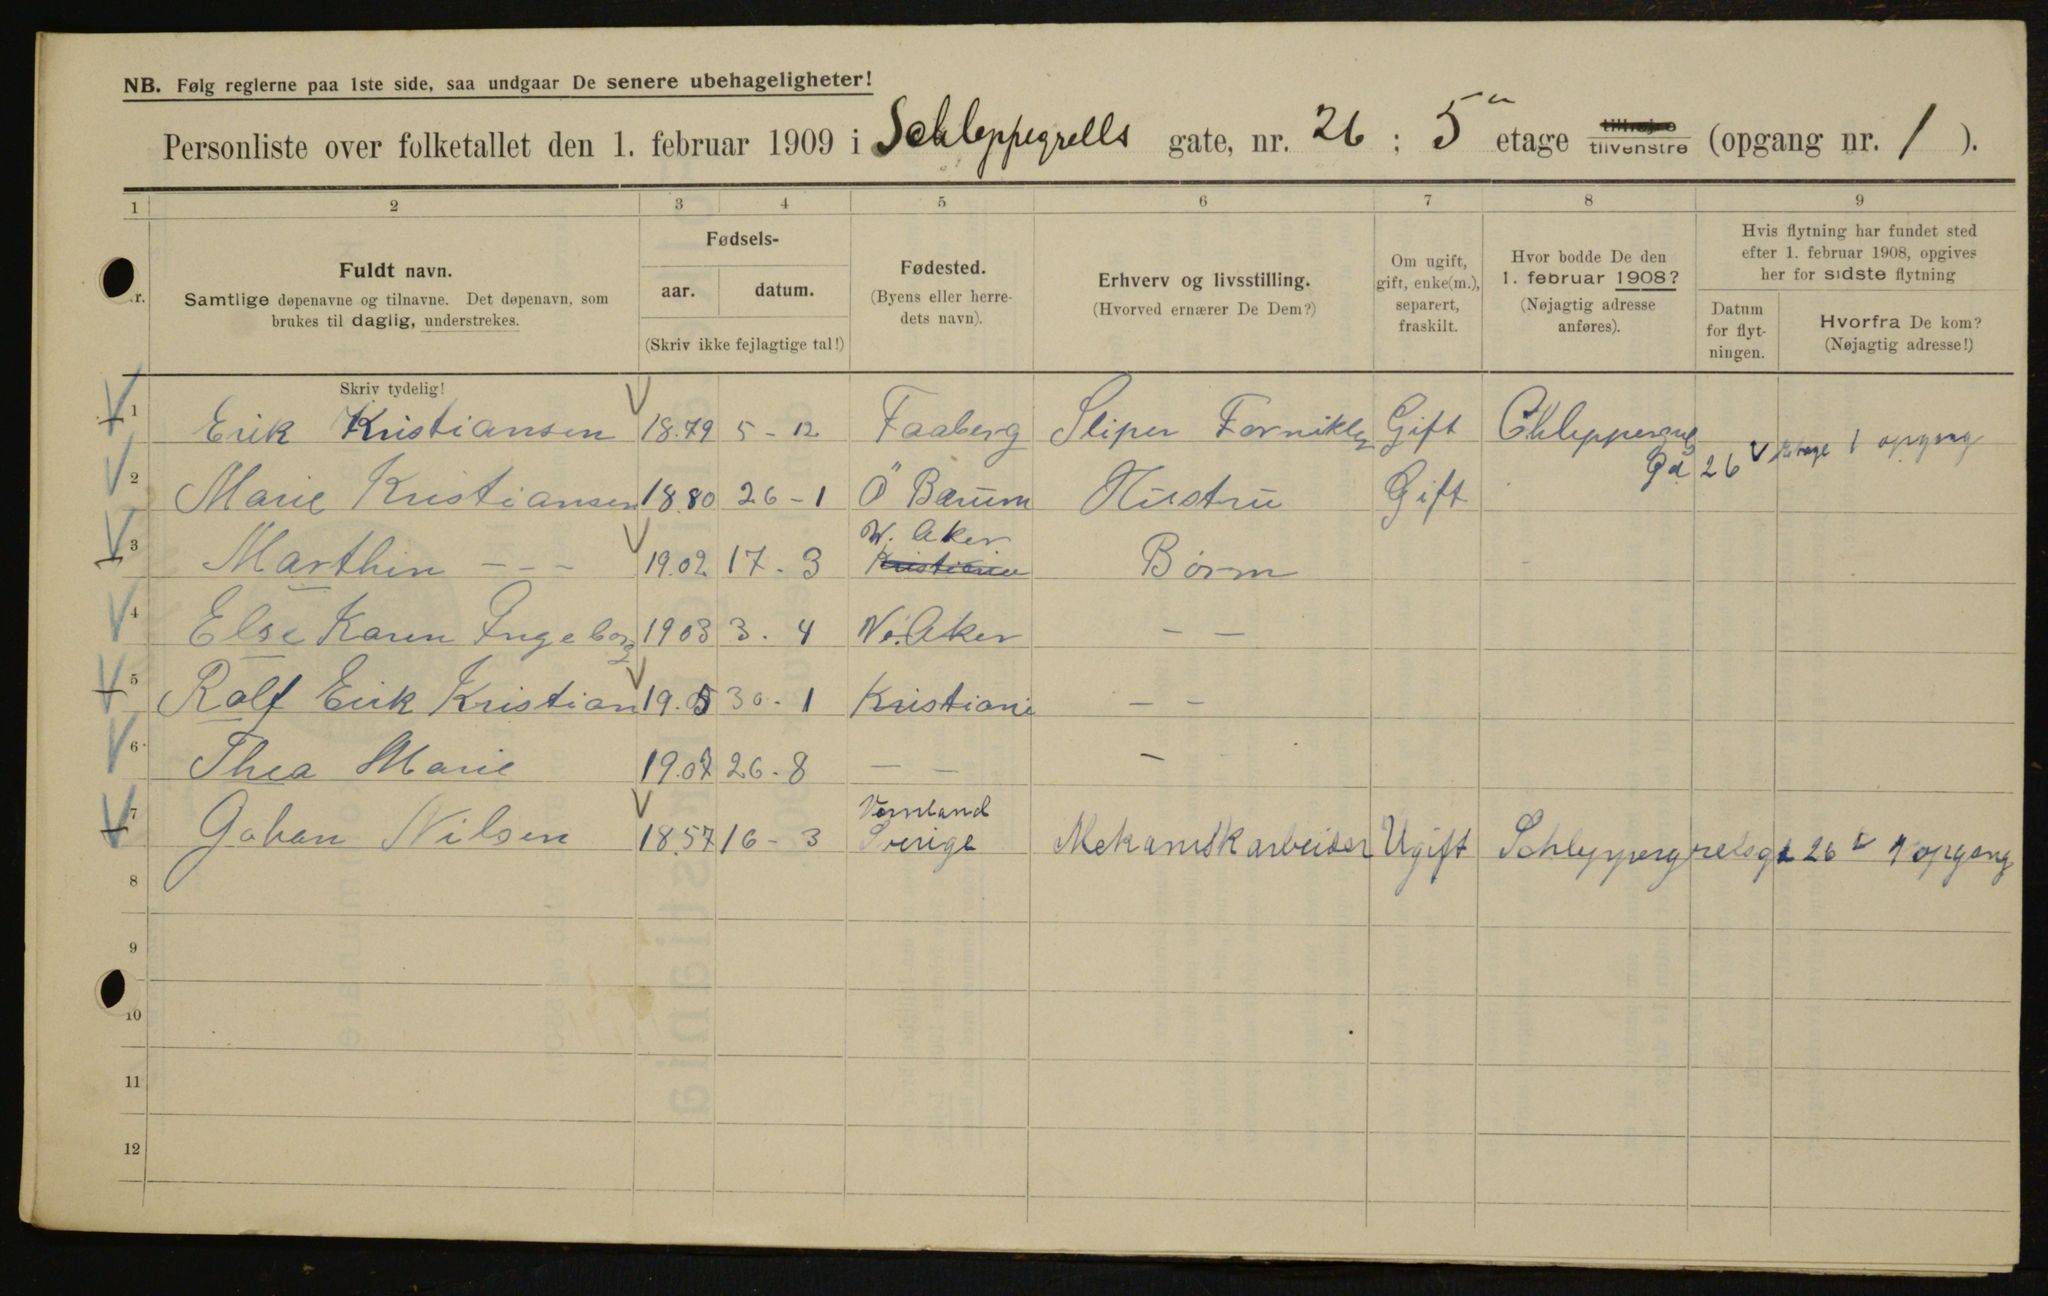 NB. Følg reglerne paa 1ste side, saa undgaar De senere ubehageligheter!
Personliste over folketallet den 1. februar 1909 i Schleppegrells gate, nr. 26 ; 5 etage tilhøire tilvenstre (opgang nr. 1 ).
1 2 3 4 5 6 7 8 9
Nr.
Fuldt navn.
Samtlige døpenavne og tilnavne. Det døpenavn, som
brukes til daglig, understrekes.
Skriv tydelig!
Fødsels-
aar. datum.
(Skriv ikke fejlagtige tal!)
Fødested.
(Byens eller herre-
dets navn).
Erhverv og livsstilling.
(Hvorved ernærer De Dem?)
Om ugift,
gift, enke(m.),
separert,
fraskilt.
Hvor bodde De den
1. februar 1908?
(Nøjagtig adresse
anføres).
Hvis flytning har fundet sted
efter 1. februar 1908, opgives
her for sidste flytning
Datum
for flyt-
ningen.
Hvorfra De kom?
(Nøjagtig adresse!)
1 Erik Kristiansen 18.79 5 - 12 Faaberg Sliper Fornikler Gift
Gd 26 V etage 1 opgang
2 Marie Kristiansen 18.80 26 - 1 Ö Bærum Hustru Gift
3 Marthin - - - 19.02 17 - 3 W. Aker Kristiania Børn
4 Else Karen Ingeborg 1903 3 - 4 V. Aker - -
5 Ralf Erik Kristian 19.05 30 - 1 Kristiani - -
6 Thea Marie 19.07 26 - 8 - - - -
7 Johan Nilsen 18.57 16 - 3 Vernland Sverige Mekanisk arbeider Ugift Schleppegrelsgt 26 1 opgang
8
9
10
11
12